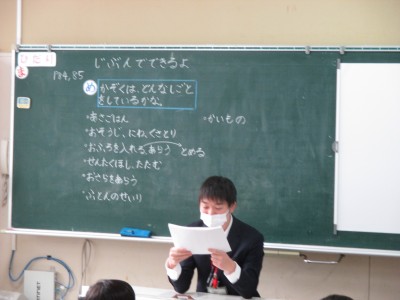 じぶんでできるよ
P84,85
め かぞくは、どんなしごと
をしているかな。
・あさごはん
・おそうじ、にわ、くさとり
・おふろを入れる、あらう とめる
・せんたくほし、たたむ
・おさらをあらう
・ふとんのせいり
・かいもの